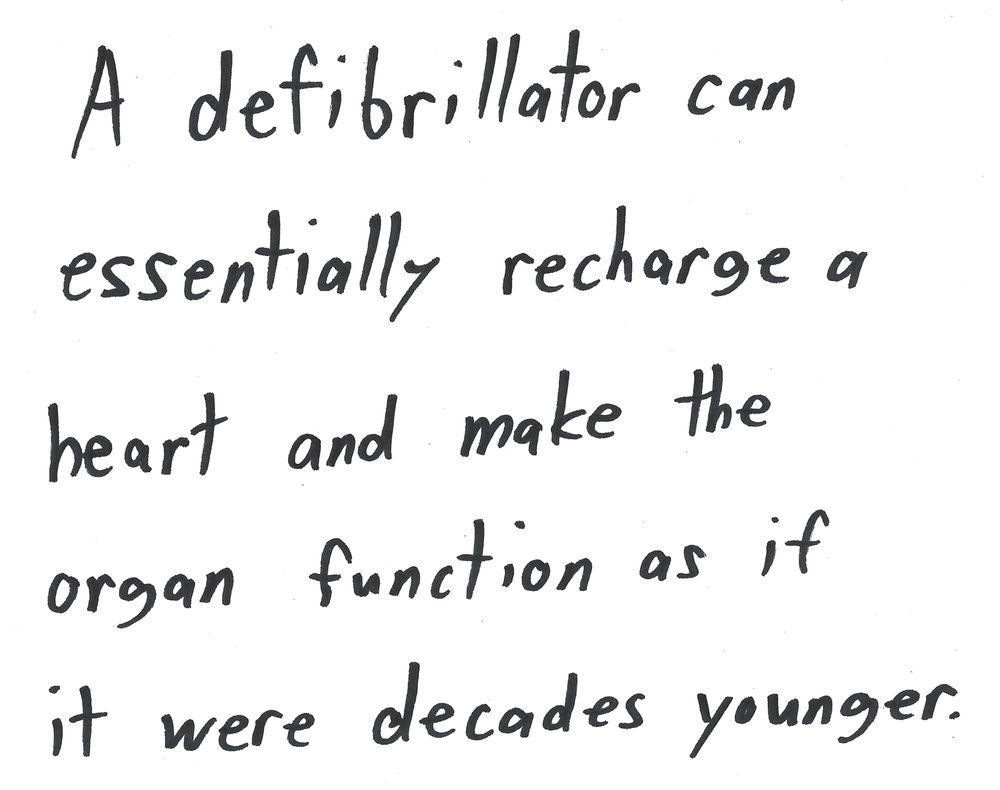 A defibrillator can
essentially recharge a
heart and make the
organ function as if
it were decades younger.